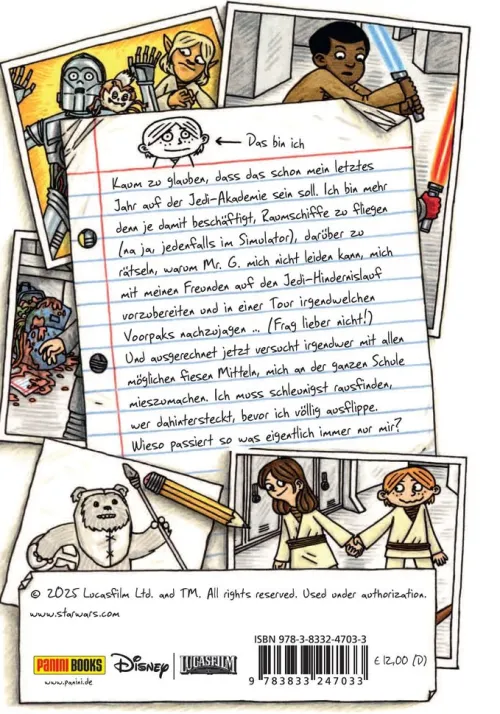 Das bin ich
Kaum zu glauben, dass das schon mein letztes
Jahr auf der Jedi-Akademie sein soll. Ich bin mehr
denn je damit beschäftigt, Raumschiffe zu fliegen
(na ja, jedenfalls im Simulator), darüber zu
rätseln, warum Mr. G. mich nicht leiden kann, mich
mit meinen Freunden auf den Jedi-Hindernislauf
vorzubereiten und in einer Tour irgendwelchen
Voorpaks nachzujagen ... (Frag lieber nicht!)
Und ausgerechnet jetzt versucht irgendwer mit allen
möglichen fiesen Mitteln, mich an der ganzen Schule
mieszumachen. Ich muss schleunigst rausfinden,
wer dahintersteckt, bevor ich völlig ausflippe.
Wieso passiert so was eigentlich immer nur mir?
© 2025 Lucasfilm Ltd. and TM. All rights reserved. Used under authorization.
www.starwars.com
ISBN 978-3-8332-4703-3
PANINI BOOKS Disney LUCASFILM
€ 12,00 (D)
www.panini.de
9 783833 247033